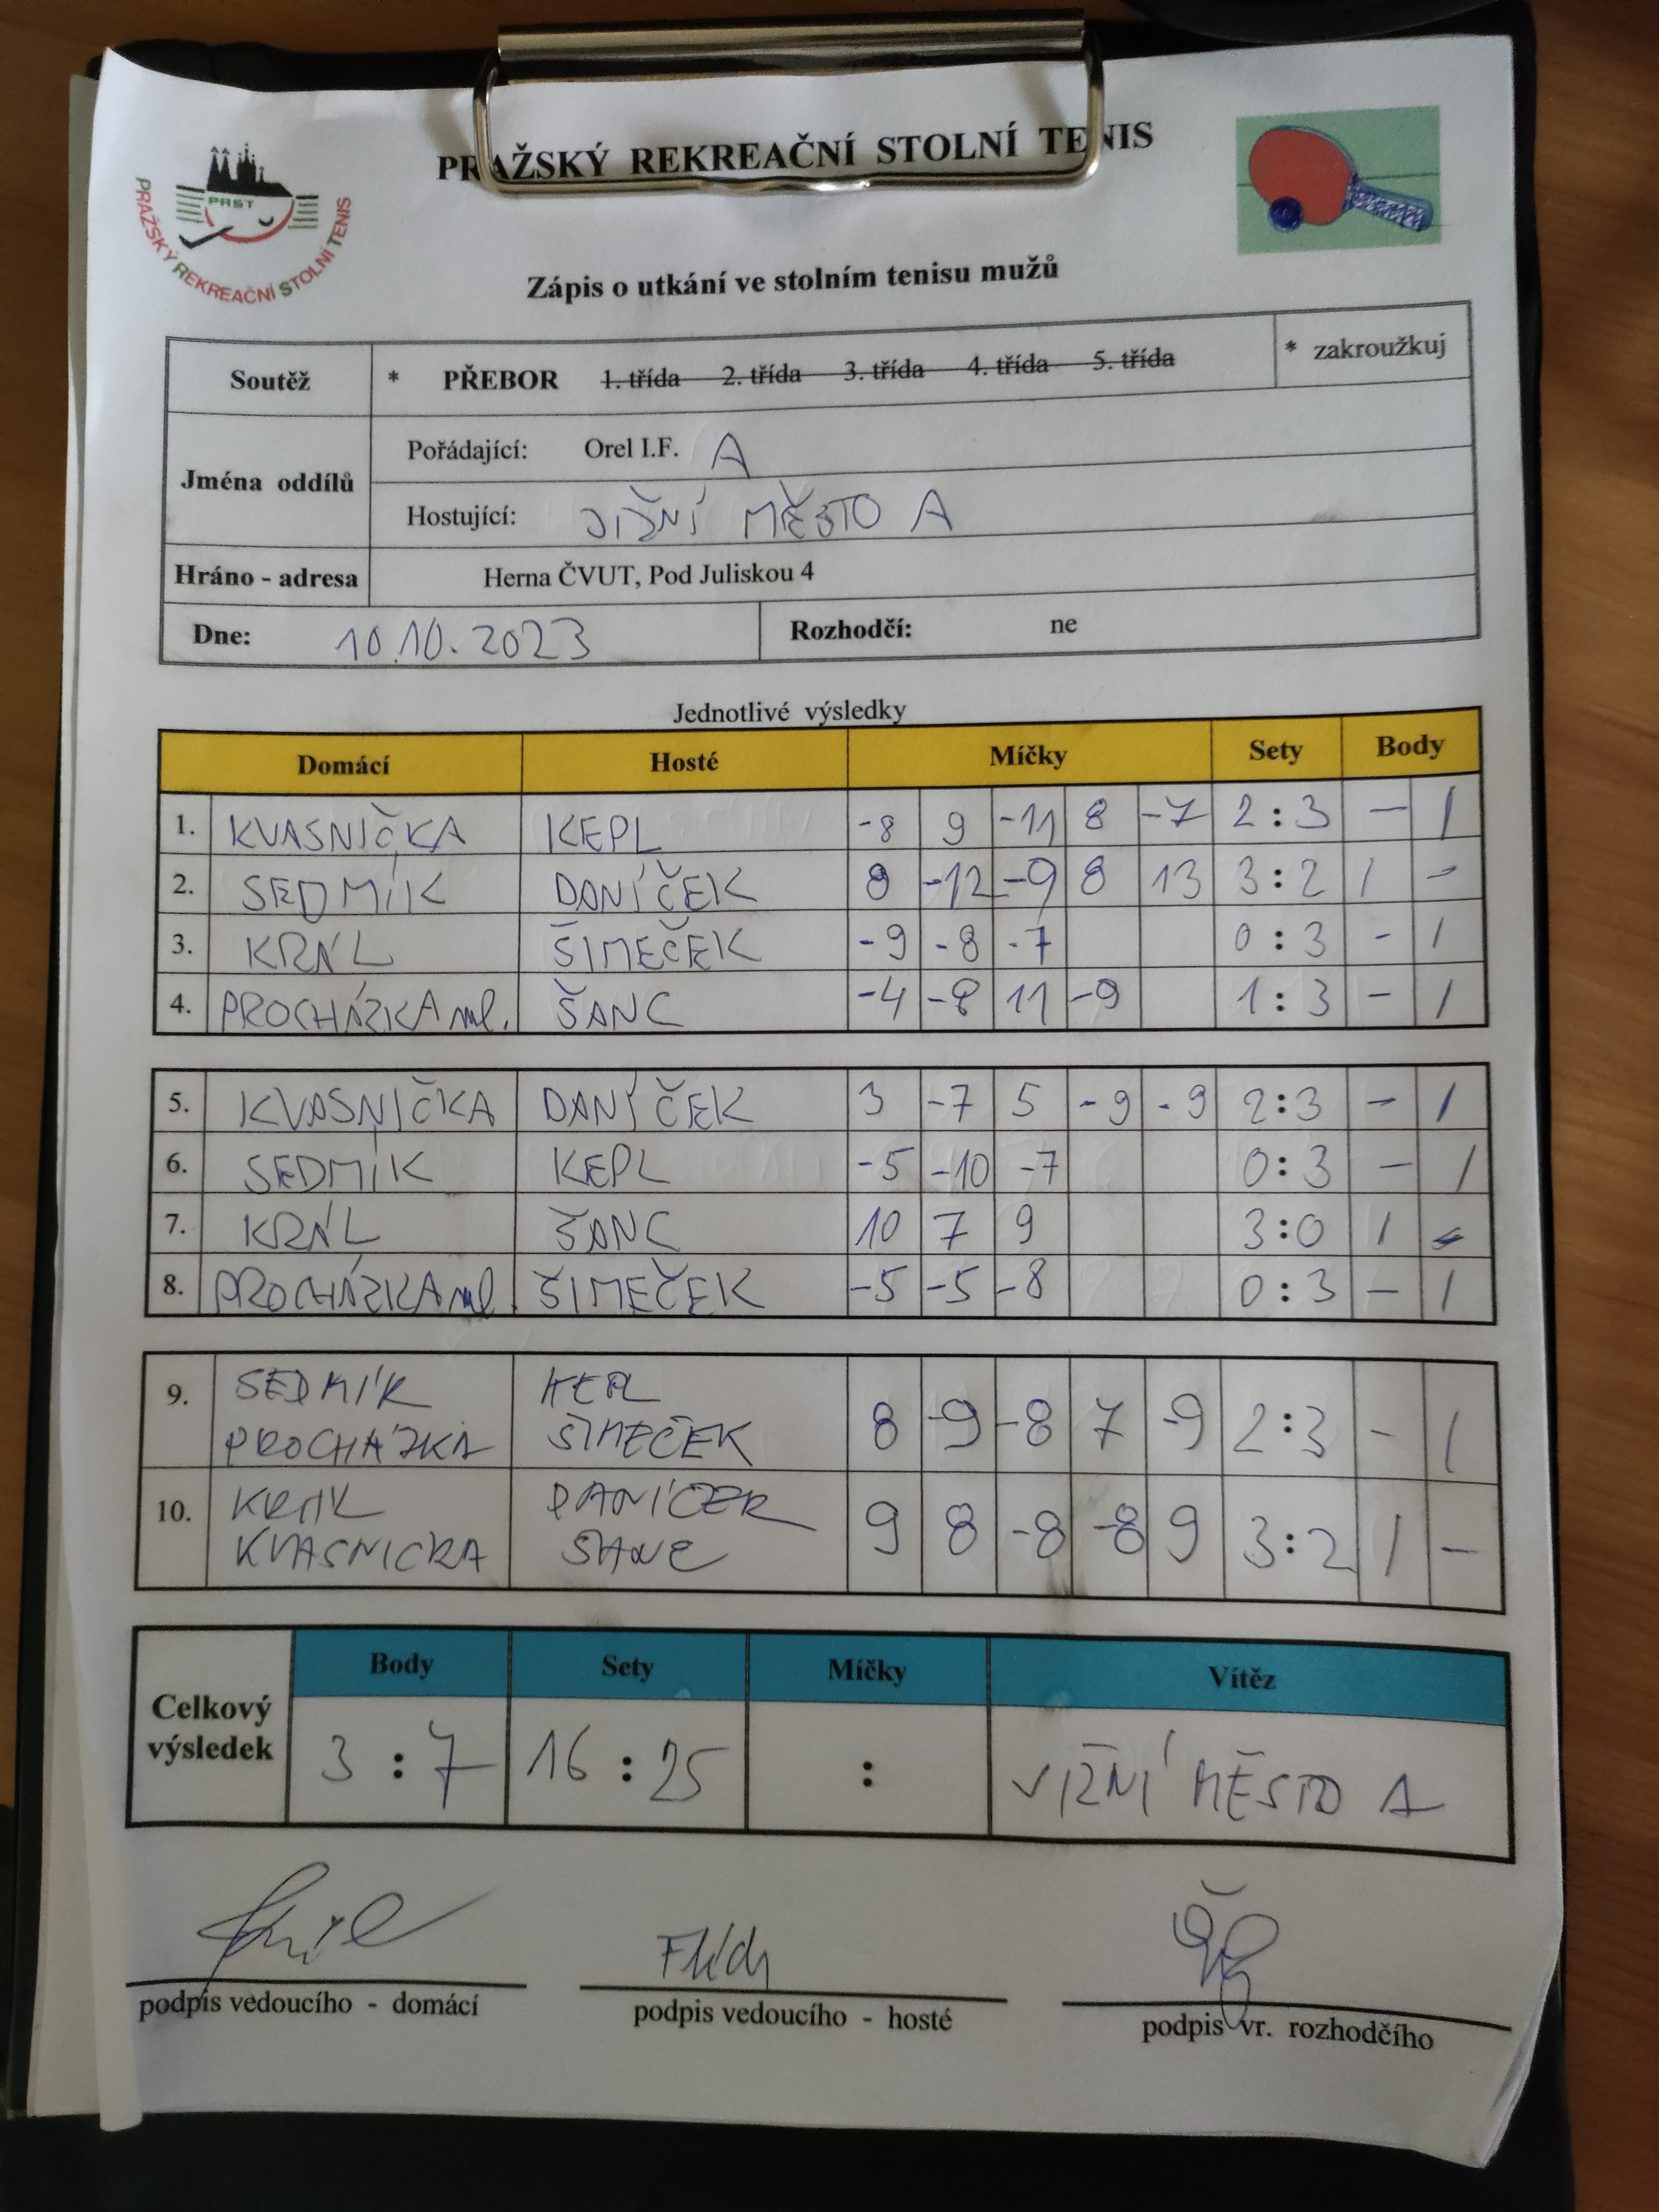 PRAŽSKÝ REKREAČNÍ STOLNÍ TENIS
PRST
PRAŽSKÝ REKREAČNÍ STOLNÍ TENIS
Zápis o utkání ve stolním tenisu mužů
Soutěž * PŘEBOR 1. třída 2. třída 3. třída 4. třída 5. třída * zakroužkuj
Jména oddílů
Pořádající: Orel I.F. A
Hostující: JIŽNÍ MĚSTO A
Hráno - adresa Herna ČVUT, Pod Juliskou 4
Dne: 10.10.2023 Rozhodčí: ne
Jednotlivé výsledky
Domácí Hosté Míčky Sety Body
1. KVASNIČKA KEPL -8 9 -11 8 -7 2:3 - 1
2. SEDMÍK DANÍČEK 8 -12 -9 8 13 3:2 1 -
3. KRÁL ŠIMEČEK -9 -8 -7 0:3 - 1
4. PROCHÁZKA ml. ŠANC -4 -8 11 -9 1:3 - 1
5. KVASNIČKA DANÍČEK 3 -7 5 -9 -9 2:3 - 1
6. SEDMÍK KEPL -5 -10 -7 0:3 - 1
7. KRÁL ŠANC 10 7 9 3:0 1 -
8. PROCHÁZKA ml. ŠIMEČEK -5 -5 -8 0:3 - 1
9. SEDMÍK KEPL
PROCHÁZKA ŠIMEČEK 8 -9 -8 7 -9 2:3 - 1
10. KRÁL DANÍČEK
KVASNICKA ŠANC 9 8 -8 -8 9 3:2 1 -
Celkový výsledek
Body Sety Míčky Vítěz
3 : 7 16 : 25 : JIŽNÍ MĚSTO A
podpis vedoucího - domácí
podpis vedoucího - hosté
podpis vr. rozhodčího